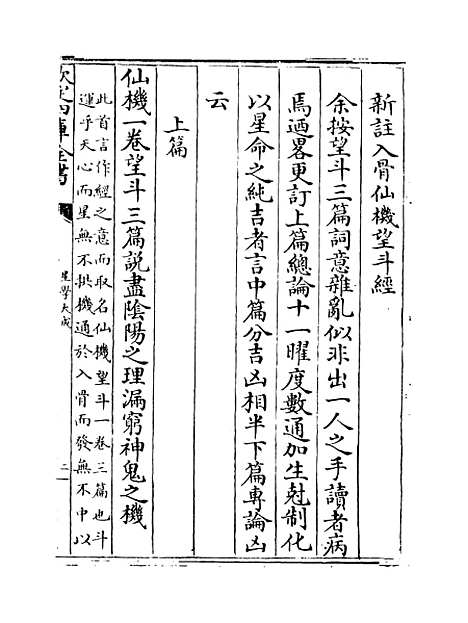 新註入骨仙機望斗經
余按望斗三篇詞意雜亂似非出一人之手讀者病
焉廼畧更訂上篇總論十一曜度數通加生尅制化
以星命之純吉者言中篇分吉凶相半下篇專論凶
云
上篇
仙機一卷望斗三篇說盡陰陽之理漏窮神鬼之機
此首言作經之意而取名仙機望斗一卷三篇也斗
運乎天心而星無不拱機通於入骨而發無不中以
欽定四庫全書
星學大成
二